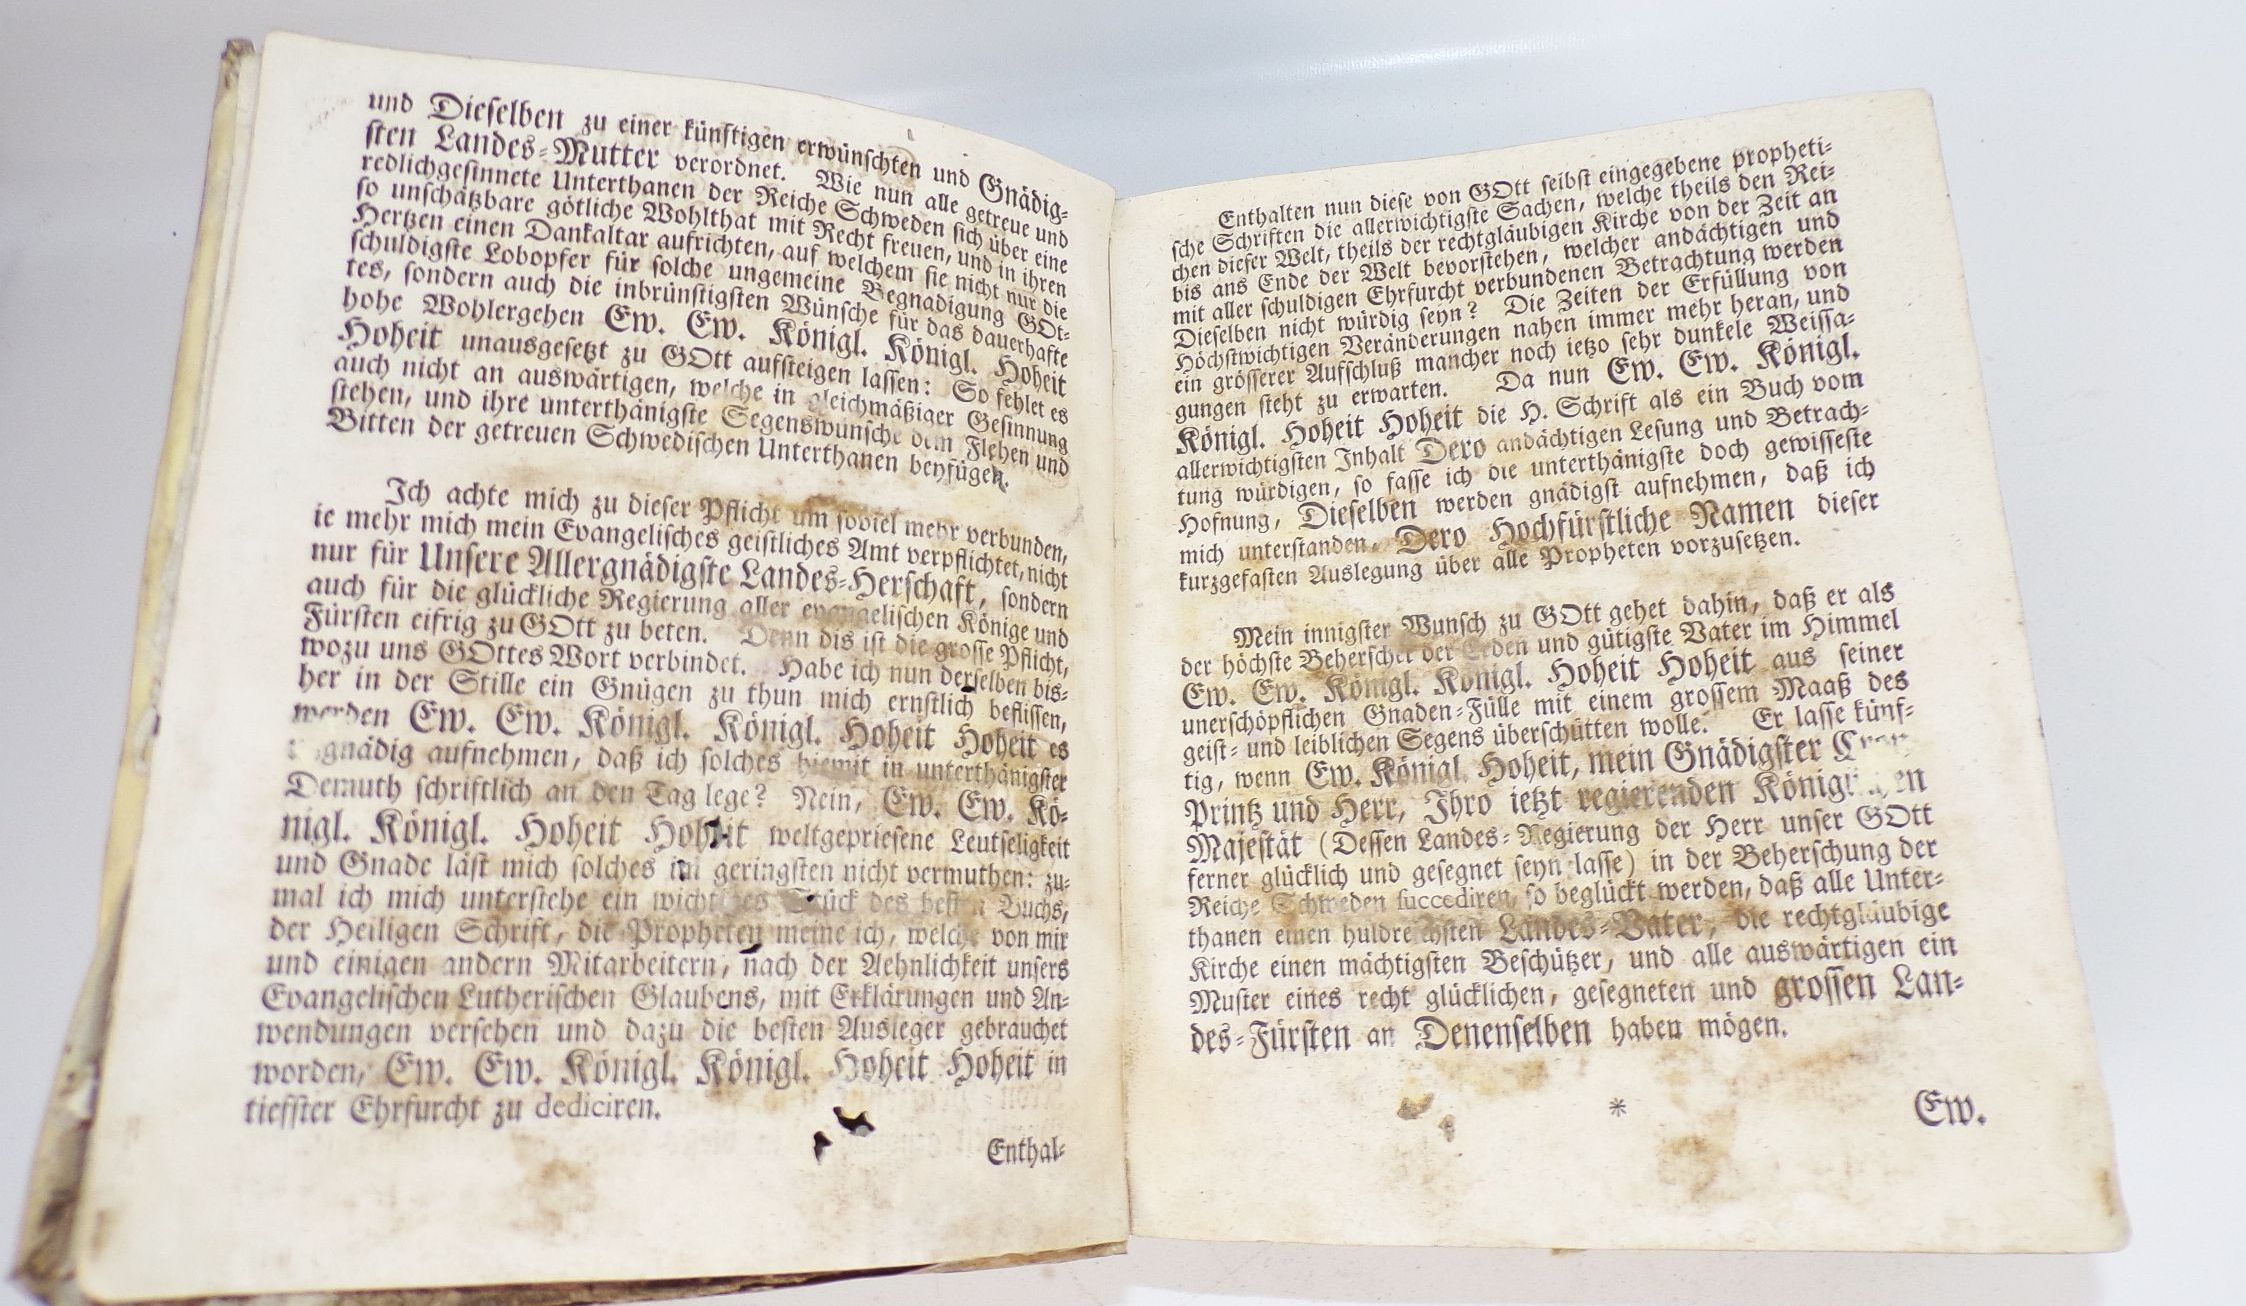 und Dieselben zu einer künftigen erwünschten und Gnädig-
sten Landes-Mutter verordnet. Wie nun alle getreue und
redlichgesinnete Unterthanen der Reiche Schweden sich über eine
so unschätzbare götliche Wohlthat mit Recht freuen, und in ihren
Hertzen einen Dankaltar aufrichten, auf welchem sie nicht nur die
schuldigste Lobopfer für solche ungemeine Begnadigung GOt-
tes, sondern auch die inbrünstigsten Wünsche für das dauerhafte
hohe Wohlergehen Ew. Ew. Königl. Königl. Hoheit
Hoheit unausgesetzt zu GOtt aufsteigen lassen: So fehlet es
auch nicht an auswärtigen, welche in gleichmäßiger Gesinnung
stehen, und ihre unterthänigste Segenswünsche dem Flehen und
Bitten der getreuen Schwedischen Unterthanen beyfügen.
Ich achte mich zu dieser Pflicht um soviel mehr verbunden,
ie mehr mich mein Evangelisches geistliches Amt verpflichtet, nicht
nur für Unsere Allergnädigste Landes-Herschaft, sondern
auch für die glückliche Regierung aller evangelischen Könige und
Fürsten eifrig zu GOtt zu beten. Denn dis ist die grosse Pflicht,
wozu uns GOttes Wort verbindet. Habe ich nun derselben bis-
her in der Stille ein Gnügen zu thun mich ernstlich beflissen,
werden Ew. Ew. Königl. Königl. Hoheit Hoheit es
gnädig aufnehmen, daß ich solches hiemit in unterthänigster
Demuth schriftlich an den Tag lege? Nein, Ew. Ew. Kö-
nigl. Königl. Hoheit Hoheit weltgepriesene Leutseligkeit
und Gnade läst mich solches im geringsten nicht vermuthen: zu-
mal ich mich unterstehe ein wichtiges Stück des besten Buchs,
der Heiligen Schrift, die Propheten meine ich, welche von mir
und einigen andern Mitarbeitern, nach der Aehnlichkeit unsers
Evangelischen Lutherischen Glaubens, mit Erklärungen und An-
wendungen versehen und dazu die besten Ausleger gebrauchet
worden, Ew. Ew. Königl. Königl. Hoheit Hoheit in
tiefster Ehrfurcht zu dediciren.
Enthal-
Enthalten nun diese von GOtt selbst eingegebene propheti-
sche Schriften die allerwichtigste Sachen, welche theils den Rei-
chen dieser Welt, theils der rechtgläubigen Kirche von der Zeit an
bis ans Ende der Welt bevorstehen, welcher andächtigen und
mit aller schuldigen Ehrfurcht verbundenen Betrachtung werden
Dieselben nicht würdig seyn? Die Zeiten der Erfüllung von
Höchstwichtigen Veränderungen nahen immer mehr heran, und
ein grösserer Aufschluß mancher noch ietzo sehr dunkele Weissa-
gungen steht zu erwarten. Da nun Ew. Ew. Königl.
Königl. Hoheit Hoheit die H. Schrift als ein Buch vom
allerwichtigsten Inhalt Dero andächtigen Lesung und Betrach-
tung würdigen, so fasse ich die unterthänigste doch gewisseste
Hofnung, Dieselben werden gnädigst aufnehmen, daß ich
mich unterstanden, Dero Hochfürstliche Namen dieser
kurzgefasten Auslegung über alle Propheten vorzusetzen.
Mein innigster Wunsch zu GOtt gehet dahin, daß er als
der höchste Beherscher der Erden und gütigste Vater im Himmel
Ew. Ew. Königl. Königl. Hoheit Hoheit aus seiner
unerschöpflichen Gnaden-Fülle mit einem grossem Maaß des
geist- und leiblichen Segens überschütten wolle. Er lasse künf-
tig, wenn Ew. Königl. Hoheit, mein Gnädigster
Printz und Herr, Ihro ietzt regierenden Königlichen
Majestät (Dessen Landes-Regierung der Herr unser GOtt
ferner glücklich und gesegnet seyn lasse) in der Beherschung der
Reiche Schweden succediren, so beglückt werden, daß alle Unter-
thanen einen huldreichsten Landes-Vater, die rechtgläubige
Kirche einen mächtigsten Beschützer, und alle auswärtigen ein
Muster eines recht glücklichen, gesegneten und grossen Lan-
des-Fürsten an Denenselben haben mögen.
* Ew.